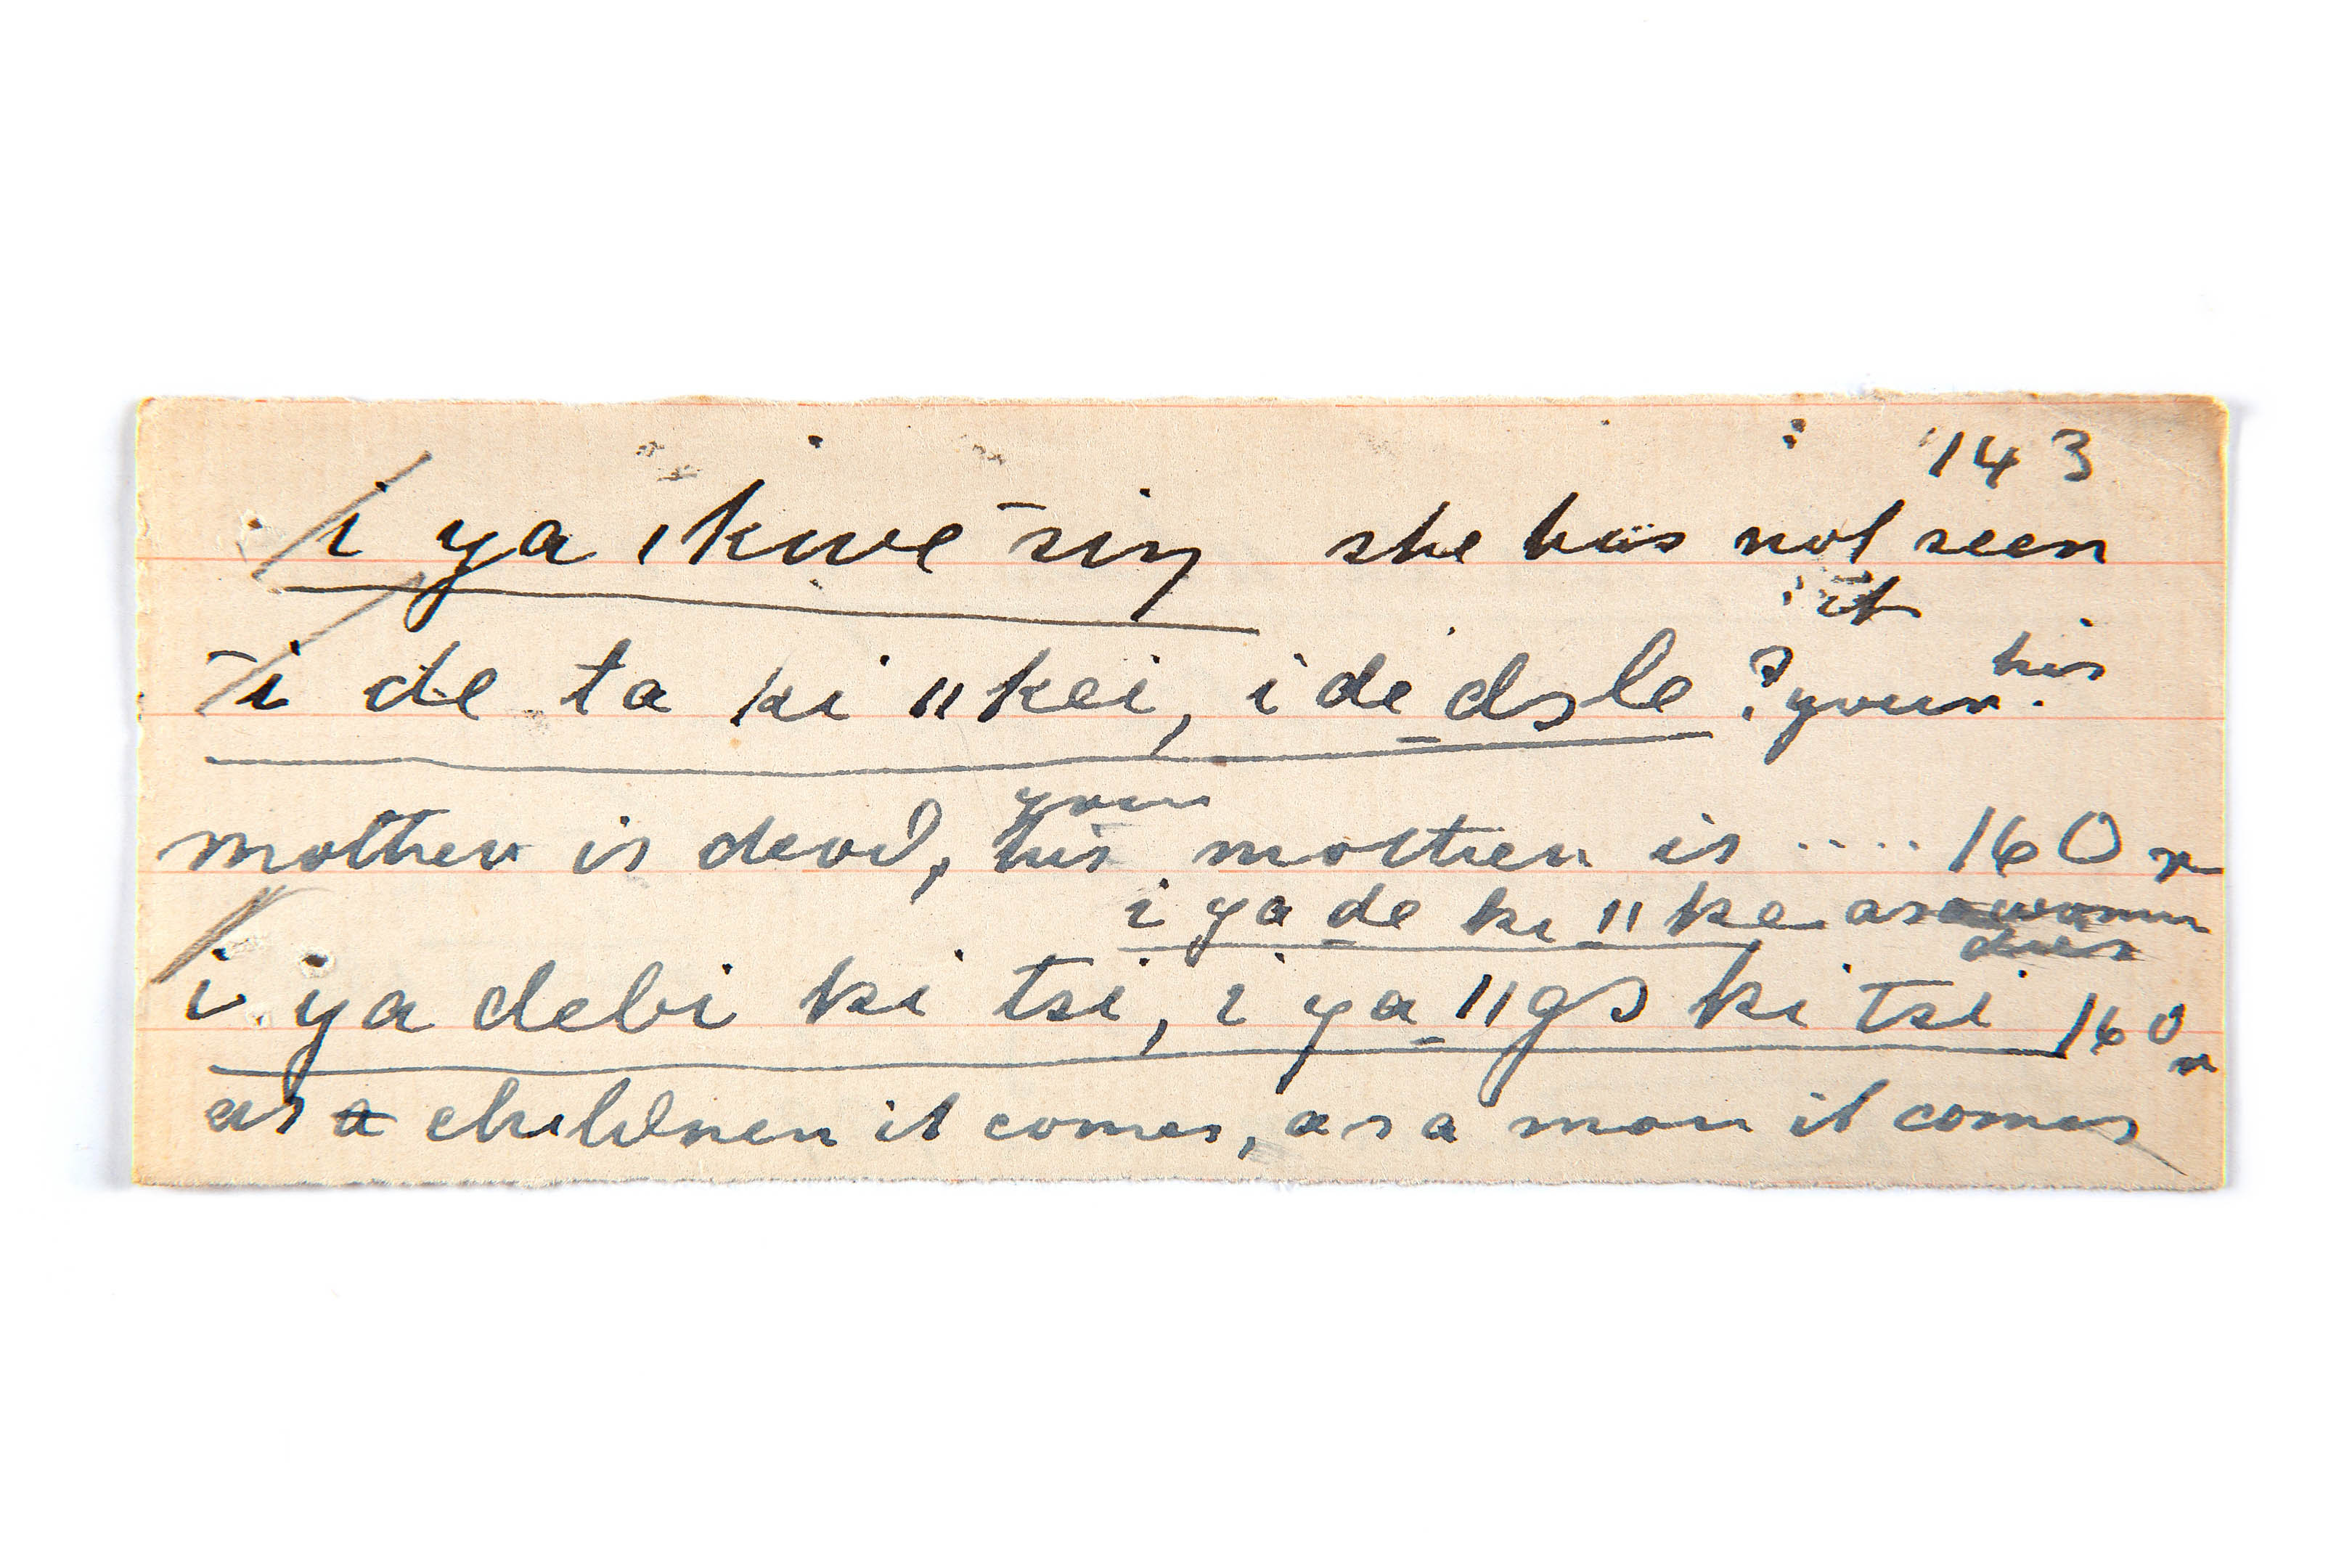 143
i ya ıkwe ̄sin she has not seen
it
ī de ta ki ıı kei, i de dsle ? your his
mother is dead, his your mother is .... 160
i ya de ki ıı ke as a woman
dies
i ya debi ki tsi, i ya ıı gs ki tsi 160
as a children it comes, as a man it comes